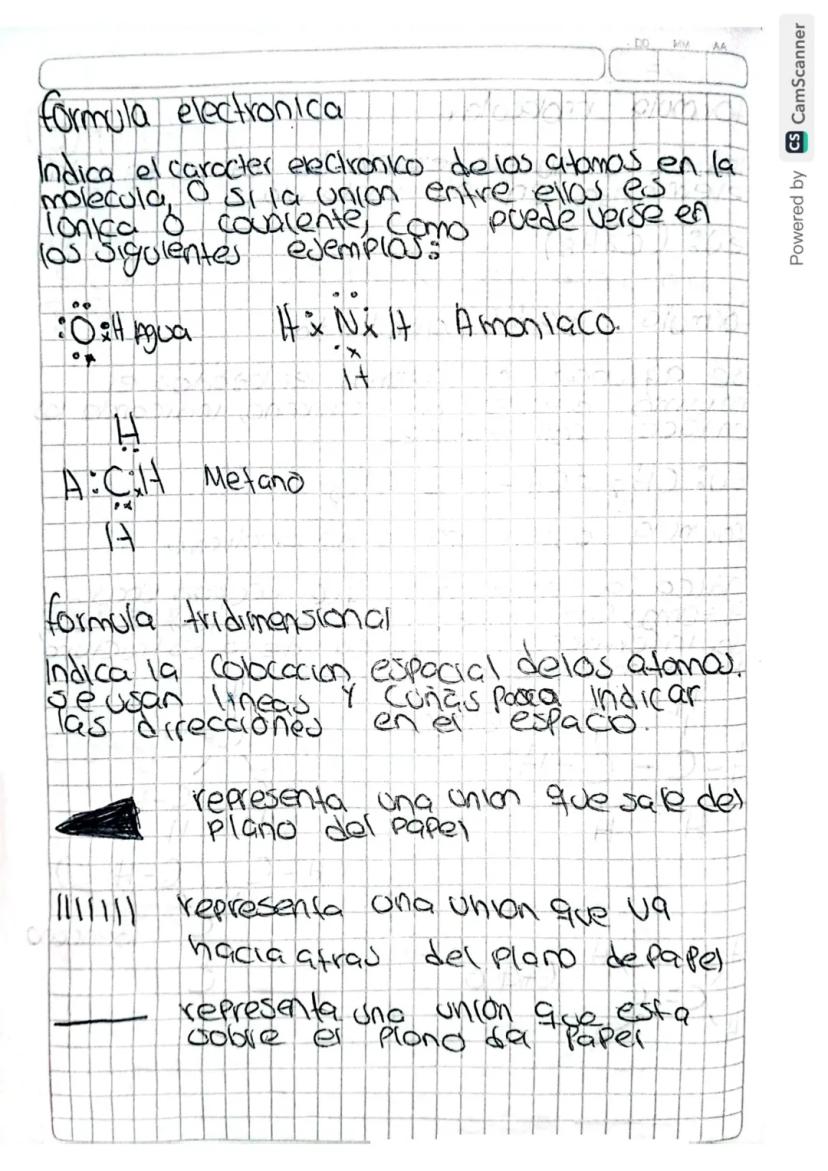 DD MM AA
formula electronica
Indica el caracter electronico de los atomos en la
molecula, O si la union entre ellos es
Ionica o covalente, como puede verse en
los siguientes ejemplos:
:O:H Agua H x N x H Amoniaco.
H
H
A:C:H Metano
H
formula tridimensional
Indica la Colocacion espacial de los atomos.
se usan lineas y cuñas para indicar
las direcciones en el espaco.
representa una union que sale del
plano del papel
representa una union que va
hacia atras del plano de papel
representa una unión que esta
sobre el plano del papel
Powered by CS CamScanner